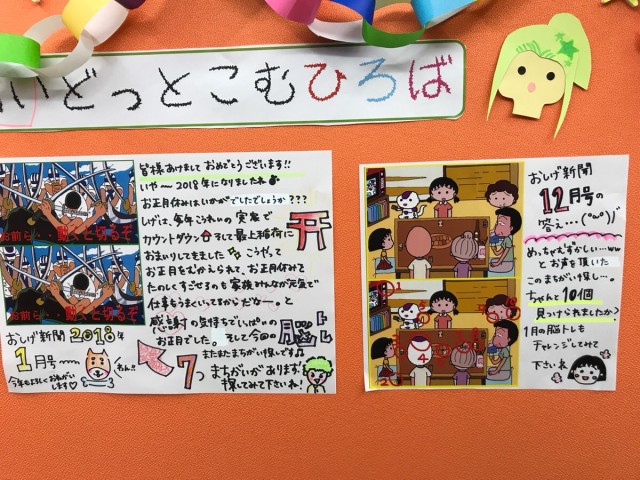 いどっとこむひろば
皆様あけまして おめでとうございます!!
いや〜2018年になりましたね
お正月休みはいかがでしたでしょうか???
しげは、多年こうれいの実家で
カウントダウン そして最上稲荷に
おまいりしてきました こうやって
お正月をむかえられて、お正月休みで
たのしくすごせるのも家族みんなが元気で
仕事もうまくいってるからだなー。と
感謝の気持ちでいっぱいの
お正月でした。そして今回の脳トレ
またまたまちがい探しです♫
7つ まちがいがあります
探してみて下さいね!
お前ら・・動くと切るぞ
お前ら・・動くと切るぞ
おしげ新聞2018年
1月号〜
わん!!
今年もよろしくおねがいします♡
おしげ新聞
12月号の
答え…(°ω°)/
めっちゃむずかしい…ww
とお声を頂いた
このまちがい探し…。
ちゃんと10個
見つけられましたか?
1月の脳トレも
チャレンジしてみて
下さいね